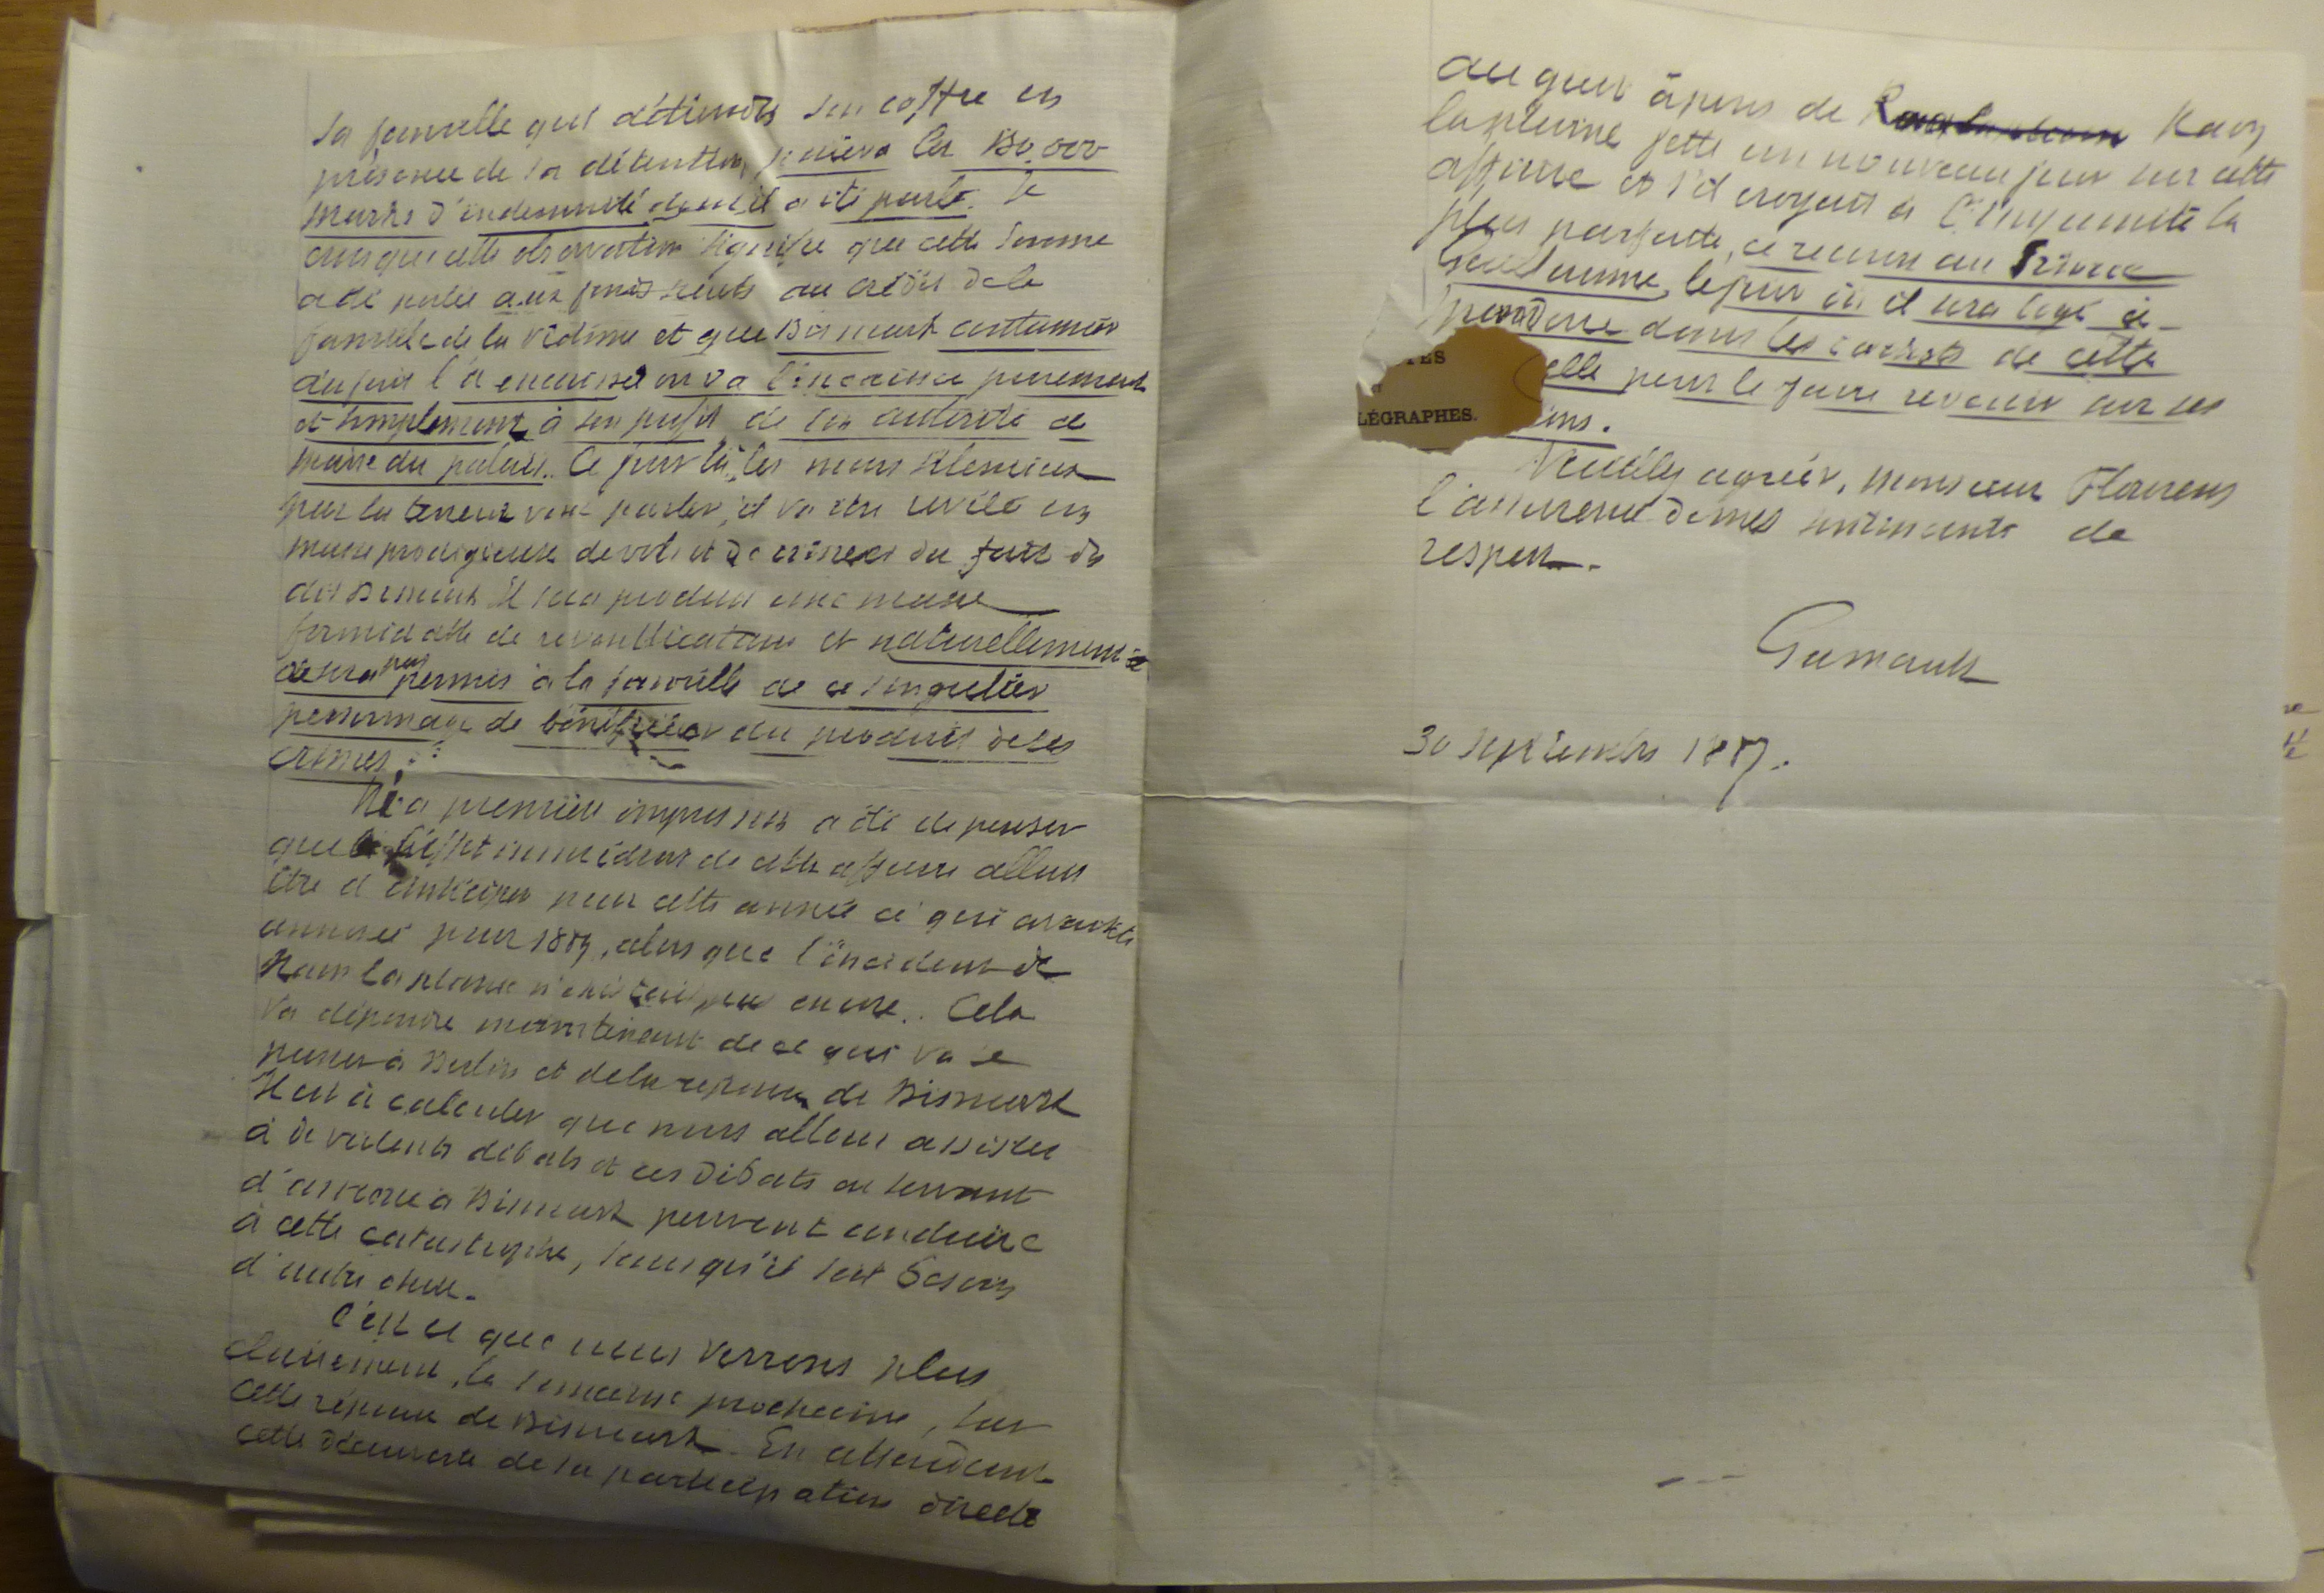 sa famille qui détiendra son coffre en
présence de sa détention, paiera les 150.000
marks d'indemnité dont il a été parlé. Je
crois que cette observation signifie que cette somme
a été portée aux au crédit de la
famille de la victime et que Bismark coutumier
du fait l'a encaissé ou va l'encaisser purement
et simplement à son profit de son autorité de
maire du palais.. Ce jour là, les murs silencieux
par la terreur vont parler, il va être révélé une
masse prodigieuse de vols et de crimes du fait du
dit Bismark il sera produit une masse
formidable de revendications et naturellement
ce sera pas permis à la famille de ce singulier
personnage de bénéficier du produit de ses
crimes.
Ma première impression a été de penser
que l'effet immédiat de cette affaire allait
être d'anticiper pour cette année ce qui avait été
annoncé pour 1889, alors que l'incident de
Raon la plaine n'existait pas encore.. Cela
va dépendre maintenant de ce qui va se
passer à Berlin et de la réponse de Bismark
Il est à calculer que nous allons assister
à de violents débats et ces débats en servant
d'amorce à Bismark peuvent conduire
à cette catastrophe, sans qu'il soit besoin
d'autre chose.
C'est ce que nous verrons plus
clairement, la semaine prochaine, sur
cette réponse de Bismark. En attendant
cette découverte de la participation directe
au guet àpens de Raon
la plaine jette un nouveau jour sur cette
affaire et s'il croyait à l'impunité la
plus parfaite, ce recours au Prince
Guillaume, le jour où il sera logé à
dans les cachots de cette
elle pour le faire revenir sur ses
ens.
TES
LÉGRAPHES.
Veuillez agréer, Monsieur Flourens
l'assurance de mes sentiments de
respect.
30 septembre 1887.